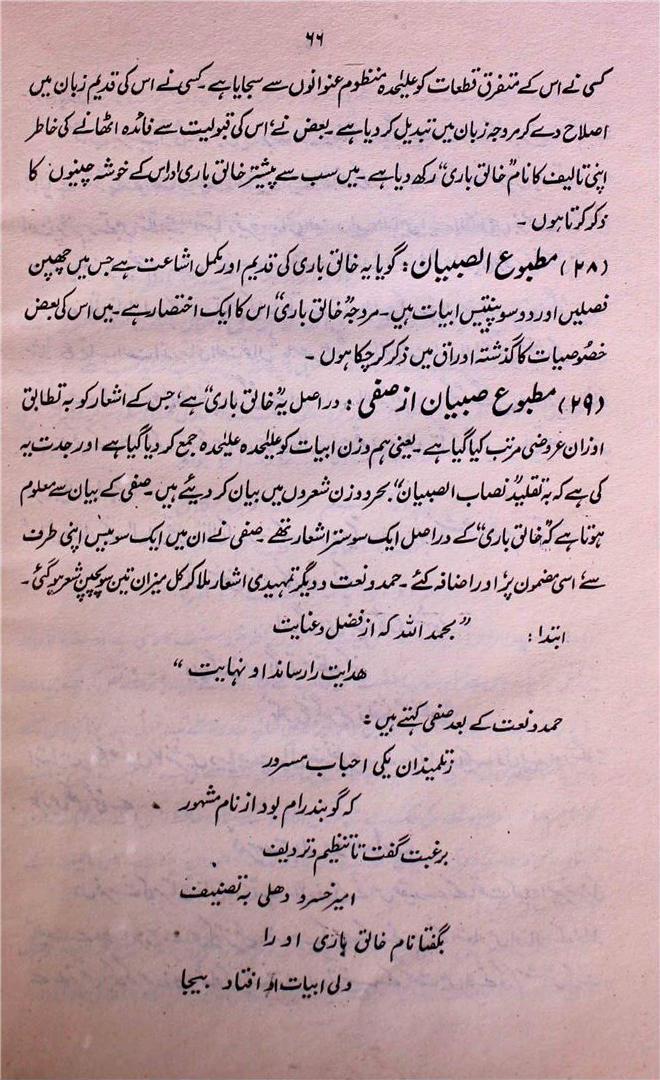 ۶۶
کسی نے اس کے متفرق قطعات کو علیحٰدہ منظوم عنوانوں سے سجایا ہے۔ کسی نے اس کی قدیم زبان میں
اصلاح دے کر مروجہ زبان میں تبدیل کر دیا ہے۔ بعض نے، اس کی قبولیت سے فائدہ اٹھانے کی خاطر
اپنی تالیف کا نام ”خالق باری“ رکھ دیا ہے۔ میں سب سے پیشتر خالق باری اور اس کے خوشہ چینوں کا
ذکر کرتا ہوں۔
(۲۸) مطبوع الصبیان: گویا یہ خالق باری کی قدیم اور مکمل اشاعت ہے جس میں چھپن
فصلیں اور دو سو پینتیس ابیات ہیں۔ مروجہ ”خالق باری“ اس کا ایک اختصار ہے۔ میں اس کی بعض
خصوصیات کا گذشتہ اوراق میں ذکر کر چکا ہوں۔
(۲۹) مطبوع صبیان از صفی: دراصل یہ ”خالق باری“ ہے، جس کے اشعار کو بہ تطابق
اوزان عروضی مرتب کیا گیا ہے۔ یعنی ہم وزن ابیات کو علیٰحدہ علیٰحدہ جمع کر دیا گیا ہے اور جدت یہ
کی ہے کہ بہ تقلید ”نصاب الصبیان“ بحر و وزن شعروں میں بیان کر دیئے ہیں۔ صفی کے بیان سے معلوم
ہوتا ہے کہ ”خالق باری“ کے دراصل ایک سو ستر اشعار تھے۔ صفی نے ان میں ایک سو بیس اپنی طرف
سے، اسی مضمون پر، اور اضافہ کئے۔ حمد و نعت و دیگر تمہیدی اشعار ملا کر کل میزان تین سو پچپن شعر ہو گئی۔
ابتدا: ”بحمد اللہ کہ از فضل و عنایت
ھدایت را رساند او نہایت“
حمد و نعت کے بعد صفی کہتے ہیں:
زتلمیذان یکی احباب مسرور
کہ گوبند رام بود از نام مشہور
برغبت گفت تا تنظیم و تردیف
امیر خسرو دھلی بہ تصنیف
بگفتا نام خالق باری او را
ولی ابیات او افتاد بیجا